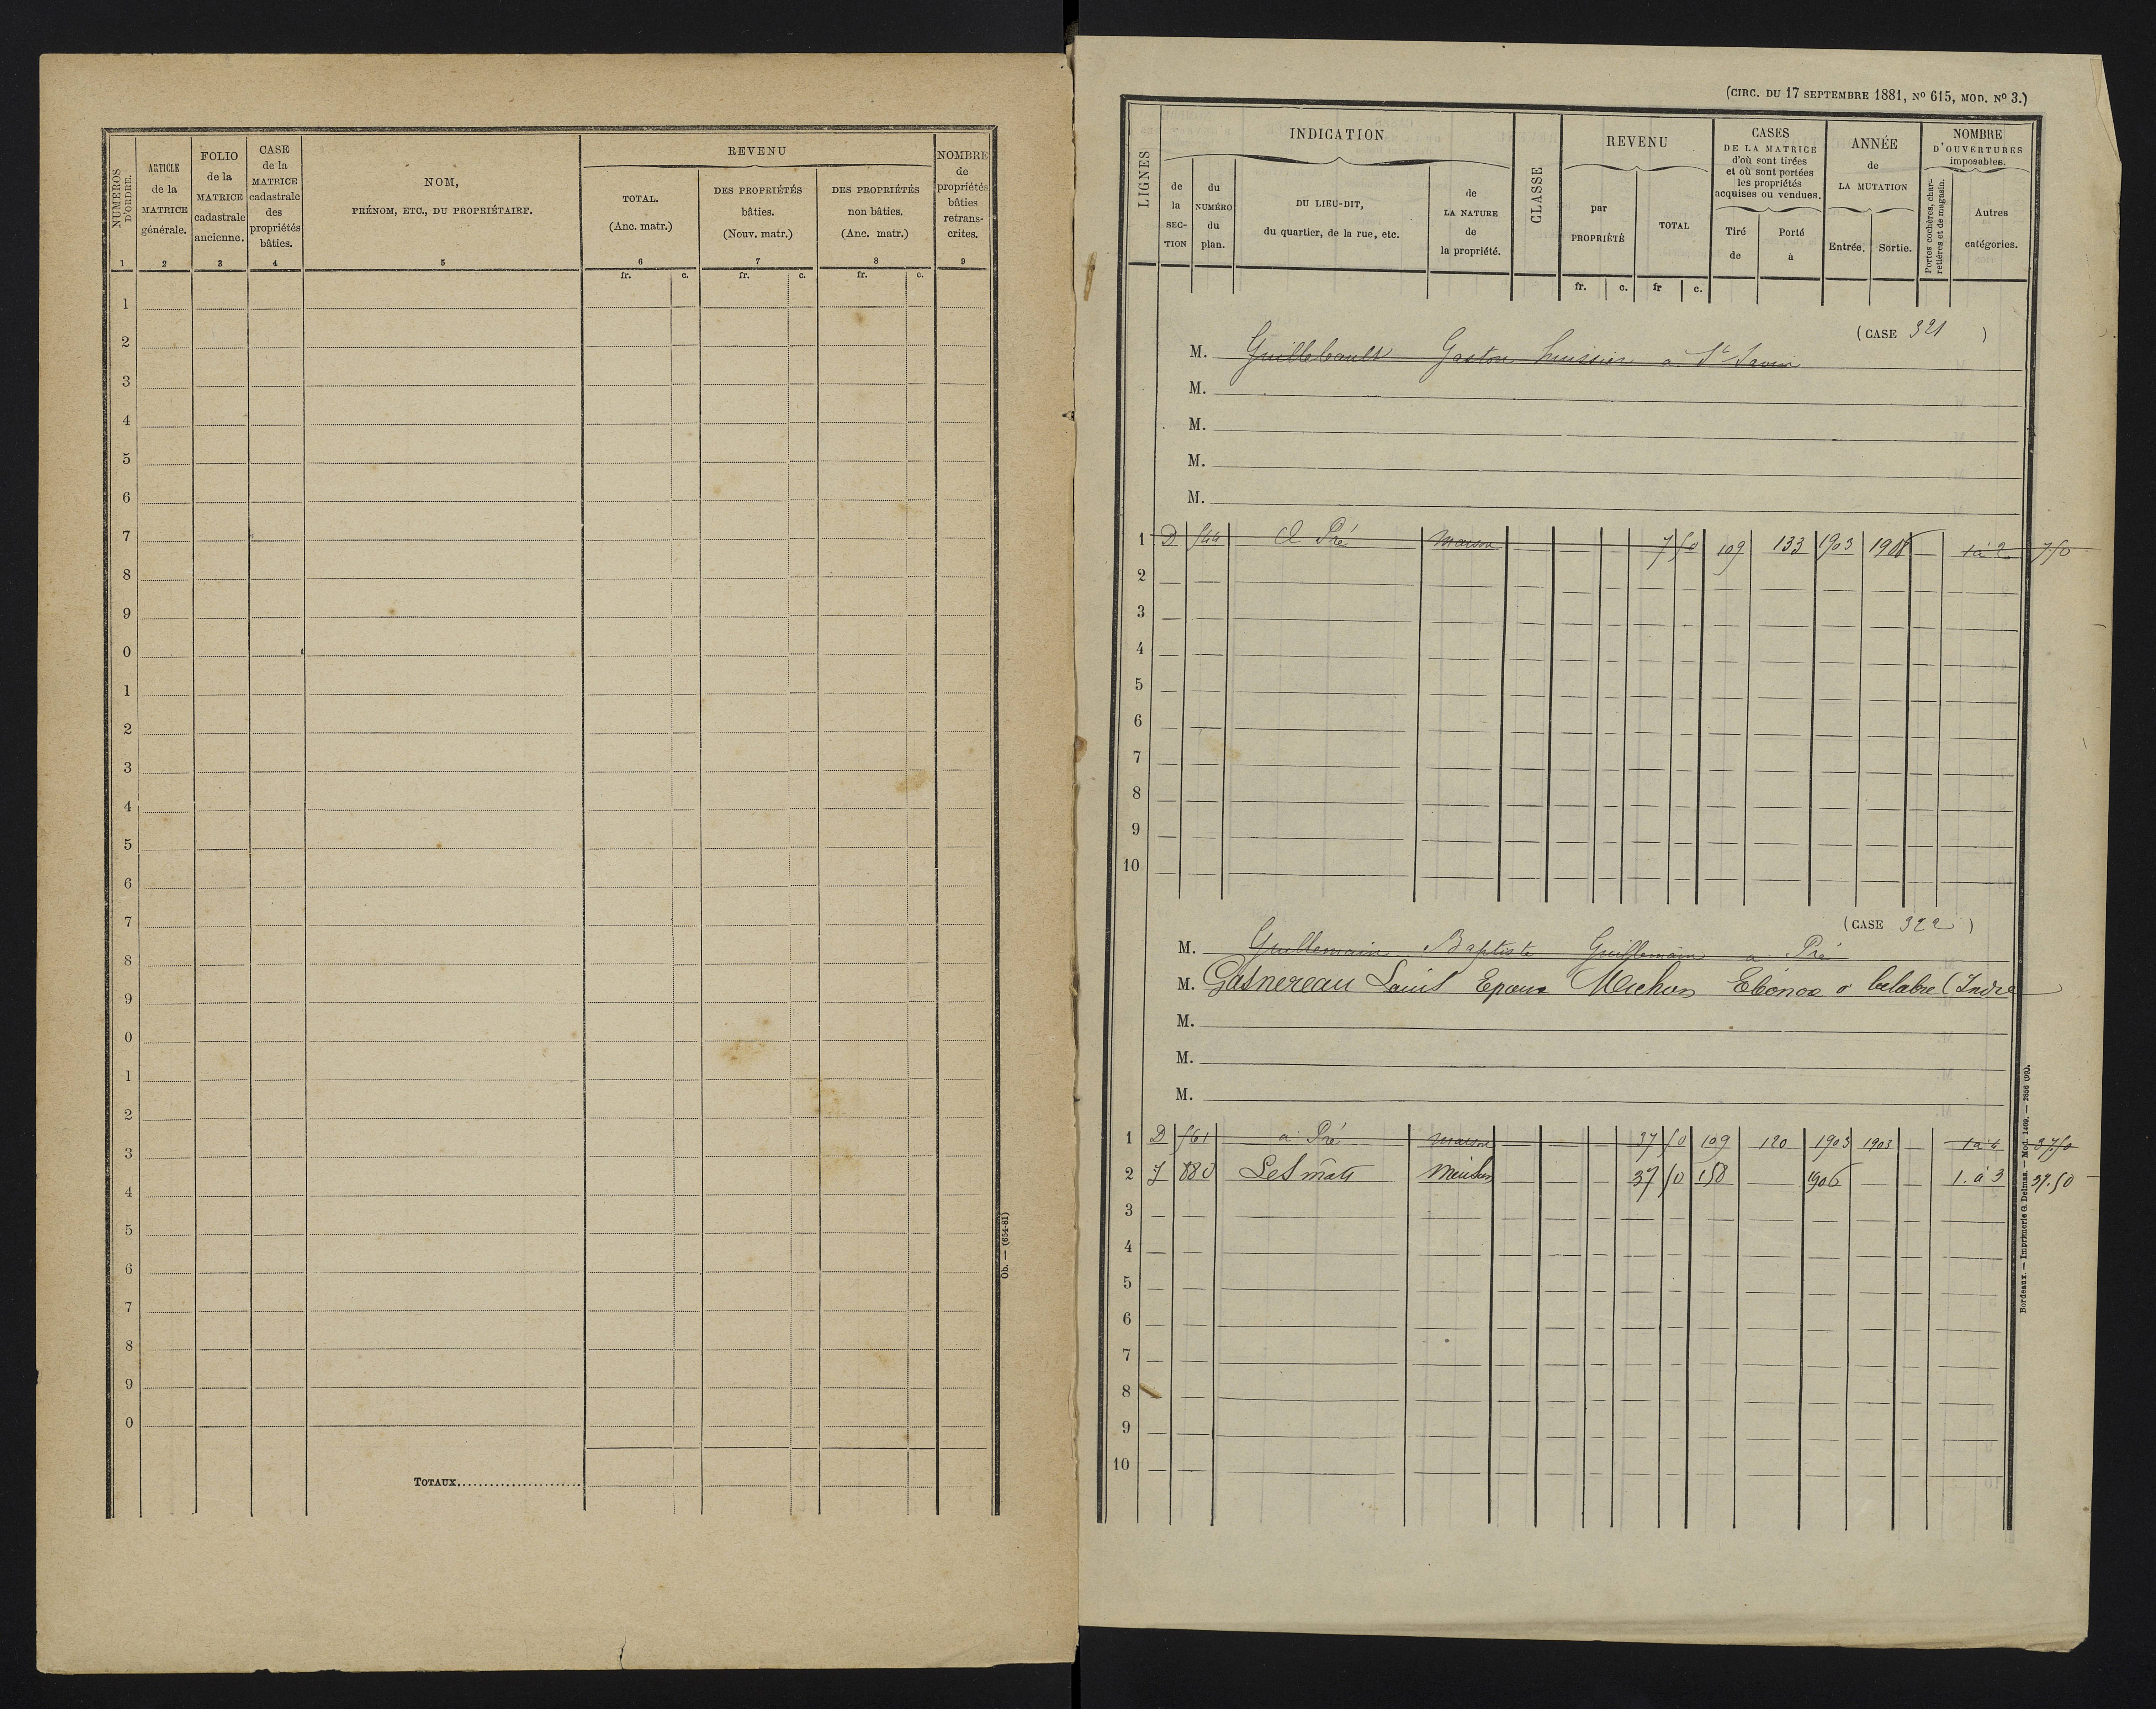 NUMÉROS D'ORDRE.
ARTICLE de la MATRICE générale.
FOLIO de la MATRICE cadastrale ancienne.
CASE de la MATRICE cadastrale des propriétés bâties.
NOM,
PRÉNOM, ETC., DU PROPRIÉTAIRE.
REVENU
TOTAL. (Anc. matr.)
DES PROPRIÉTÉS bâties. (Nouv. matr.)
DES PROPRIÉTÉS non bâties. (Anc. matr.)
NOMBRE de propriétés bâties retranscrites.
1 2 3 4 5 6 7 8 9
fr. c. fr. c. fr. c.
1
2
3
4
5
6
7
8
9
0
1
2
3
4
5
6
7
8
9
0
1
2
3
4
5
6
7
8
9
0
TOTAUX
Ob. — (654-81)
(CIRC. DU 17 SEPTEMBRE 1881, No 615, MOD. No 3.)
LIGNES
INDICATION
de la SECTION
du NUMÉRO du plan.
DU LIEU-DIT, du quartier, de la rue, etc.
de LA NATURE de la propriété.
CLASSE
REVENU
par PROPRIÉTÉ
TOTAL
CASES DE LA MATRICE d'où sont tirées et où sont portées les propriétés acquises ou vendues.
Tiré de
Porté à
ANNÉE de LA MUTATION
Entrée.
Sortie.
NOMBRE D'OUVERTURES imposables.
Portes cochères, charretières et de magasin.
Autres catégories.
fr. c. fr c.
(CASE 321 )
M. Guillebault Gaston huissier a St Savin
M.
M.
M.
M.
1 D 544 à Pré maison 7 50 109 133 1903 1 à 2 7 50
2
3
4
5
6
7
8
9
10
(CASE 322 )
M. Guillemain Baptiste Guillemain a Pré
M. Gasnereau Louis Epoux Michon a belabre (Indre
M.
M.
M.
1 D 561 a Pré maison 37 50 109 120 1903 1903 37.50
2 880 maison 37 50 158 1906 1. à 3 37.50
3
4
5
6
7
8
9
10
Bordeaux. — Imprimerie G. Delmas. — Mod. 1469. — 2856 (99).